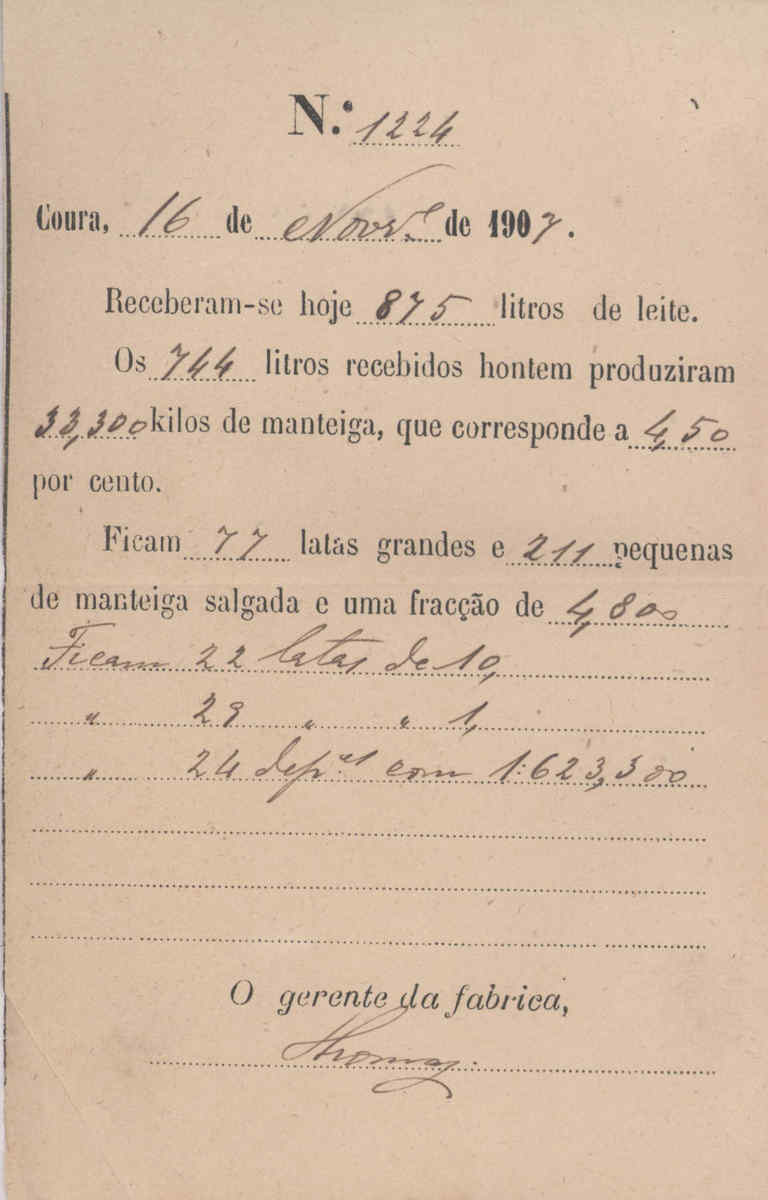 N.º 1224
Coura, 16 de Novr.e de 1907.
Receberam-se hoje 875 litros de leite.
Os 744 litros recebidos hontem produziram
33,300 kilos de manteiga, que corresponde a 4,50
por cento.
Ficam 77 latas grandes e 211 pequenas
de manteiga salgada e uma fracção de 4,800
Ficam 22 latas de 10,
" 29 " " 1,
" 24 dep.os com 1:623,300
O gerente da fabrica,
Thomaz.